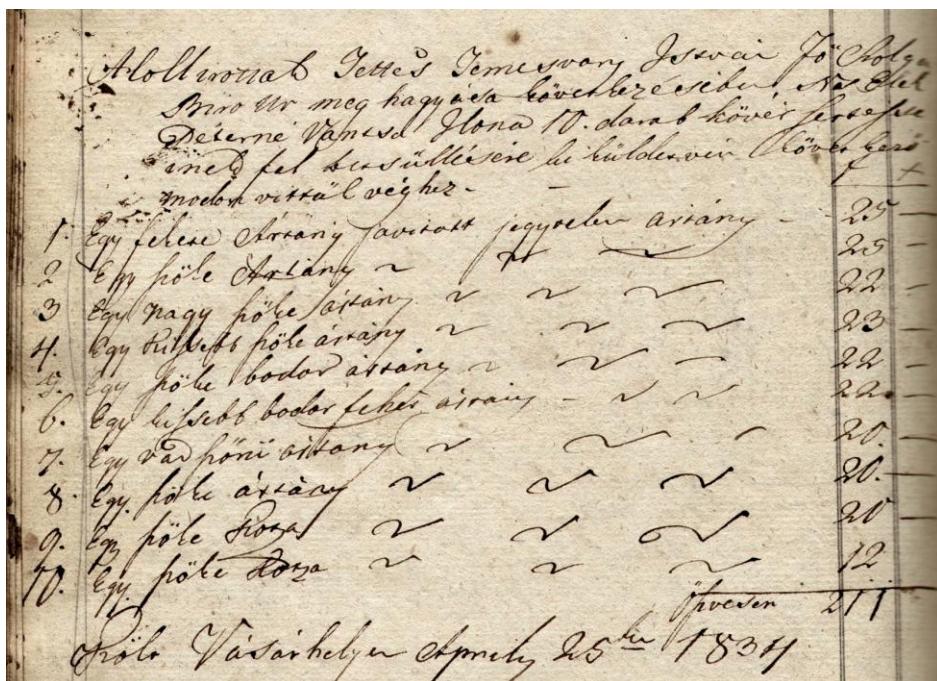 Alollirottak Tettes Temesvary Istvan Fö Szolga
Biro Ur meg hagyása következésében Ns Elek
Péterné Vantsa Ilona 10. darab kövér sertesse
inek fel betsüllésére ki küldetvén követ kező
modon vittük véghez -
1. Egy fekete Ártány javitott jegytelen artány - 25 -
2 Egy szőke Artány 〃 〃 〃 25 -
3 Egy nagy szőke ártány 〃 〃 〃 22 -
4. Egy kissebb szőke ártány 〃 〃 〃 23 -
5. Egy szőke bodor ártány 〃 〃 〃 22 -
6. Egy kissebb bodor feher ártány - 〃 〃 22 -
7. Egy vad szőrü artany 〃 〃 〃 20. -
8. Egy szőke ártány 〃 〃 〃 20. -
9. Egy szőke Kotza 〃 〃 〃 20 -
10. Egy szőke Kotza 〃 〃 〃 12
öszvesen 211
Vásárhelyen Aprily 25 1834